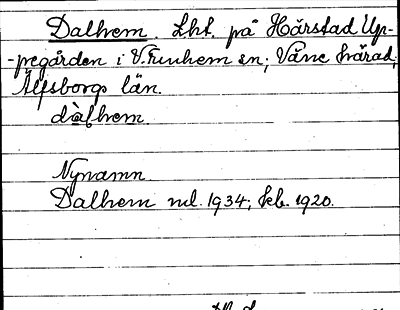 Dalhem. Lht. på Hårstad Up-
-pegården i V. Tunhem sn; Väne härad,
Älfsborgs län.
dàlhem
Nynamn
Dalhem ml. 1934; kb. 1920.